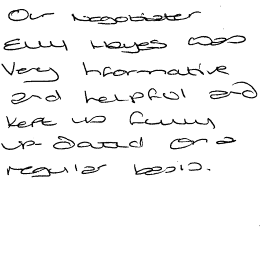 Our Negotiater
Elly Hayes was
Very Informative
and helpful and
kept us fully
up-dated on a
regular basis.